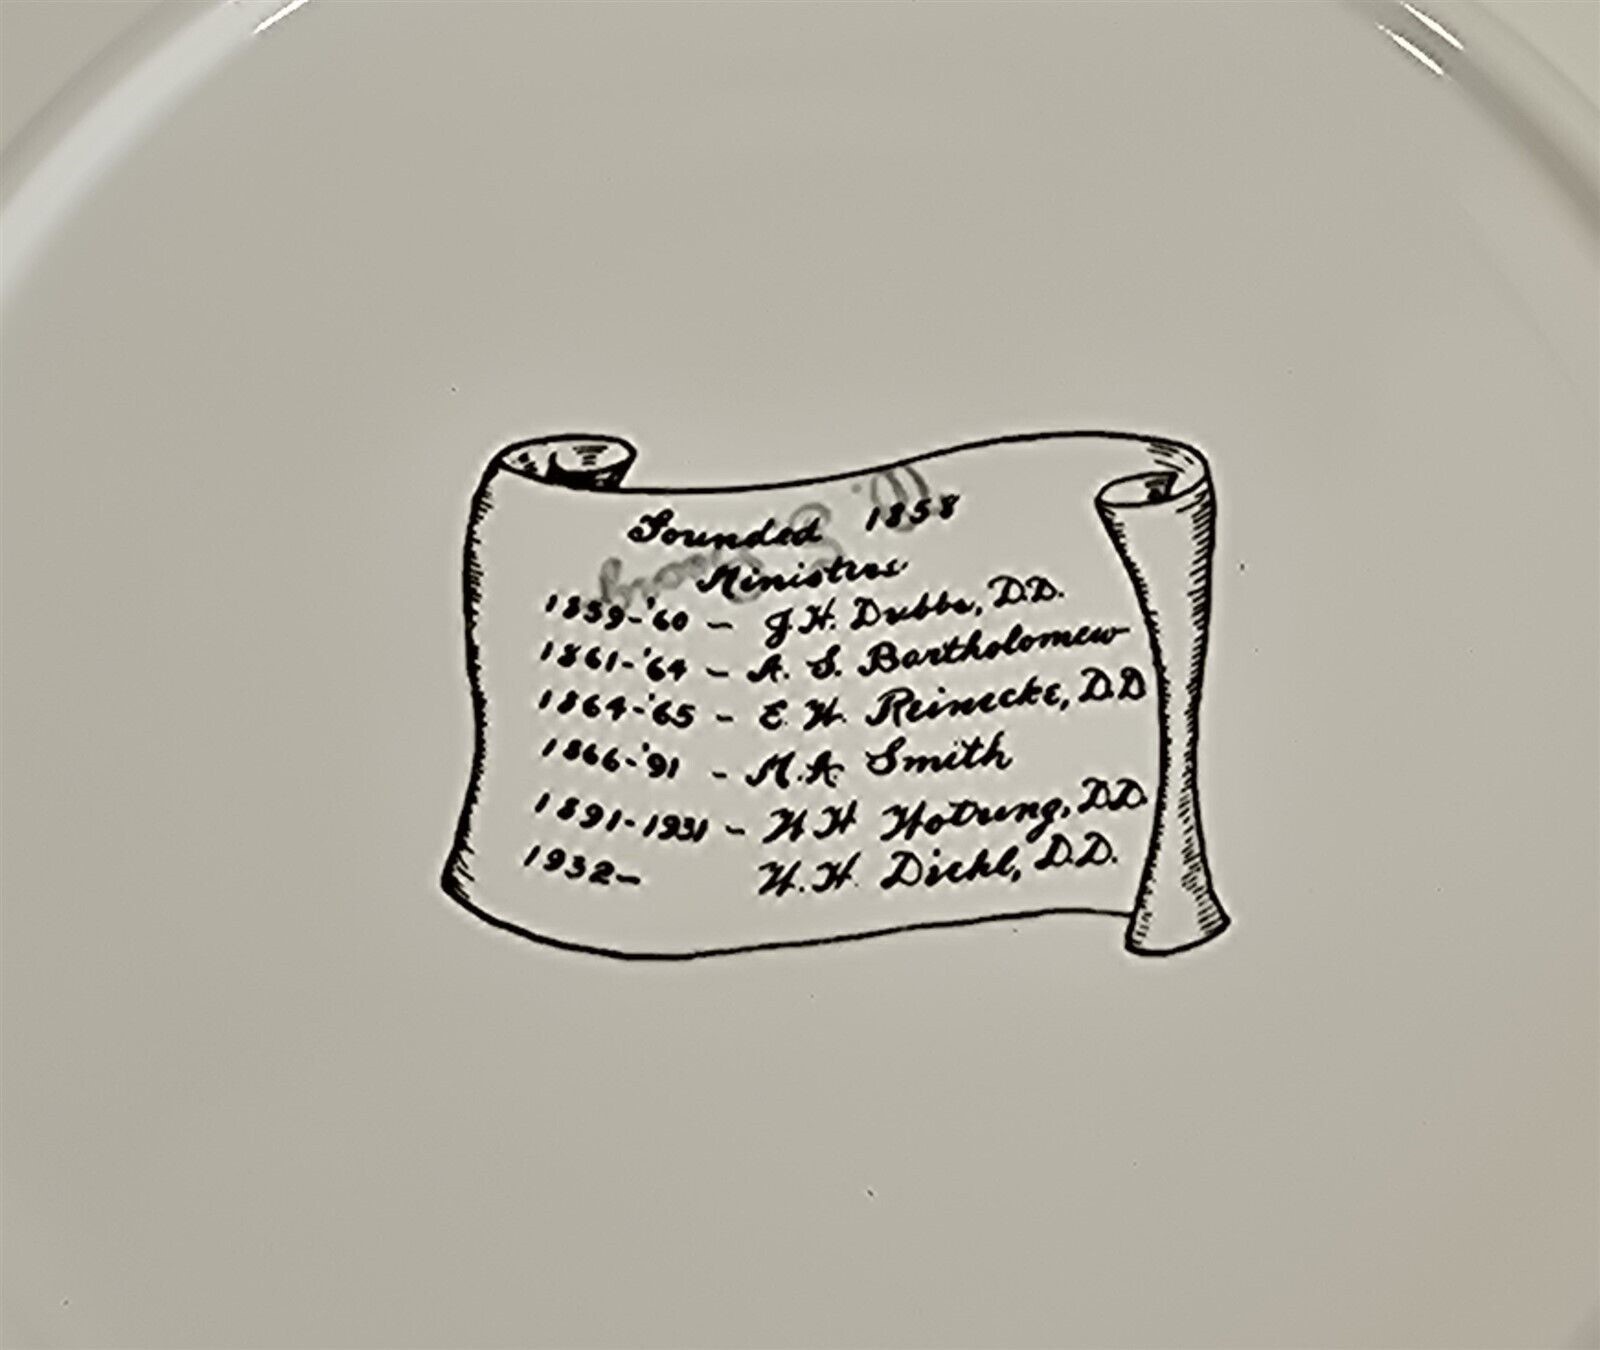 Founded 1858
Ministers
1859-'60 - J. H. Dubbs, D.D.
1861-'64 - A. S. Bartholomew
1864-'65 - E. W. Reinecke, D.D
1866-'91 - M. A. Smith
1891-1931 - W H Wotring, D.D.
1932- W. H. Diehl, D.D.